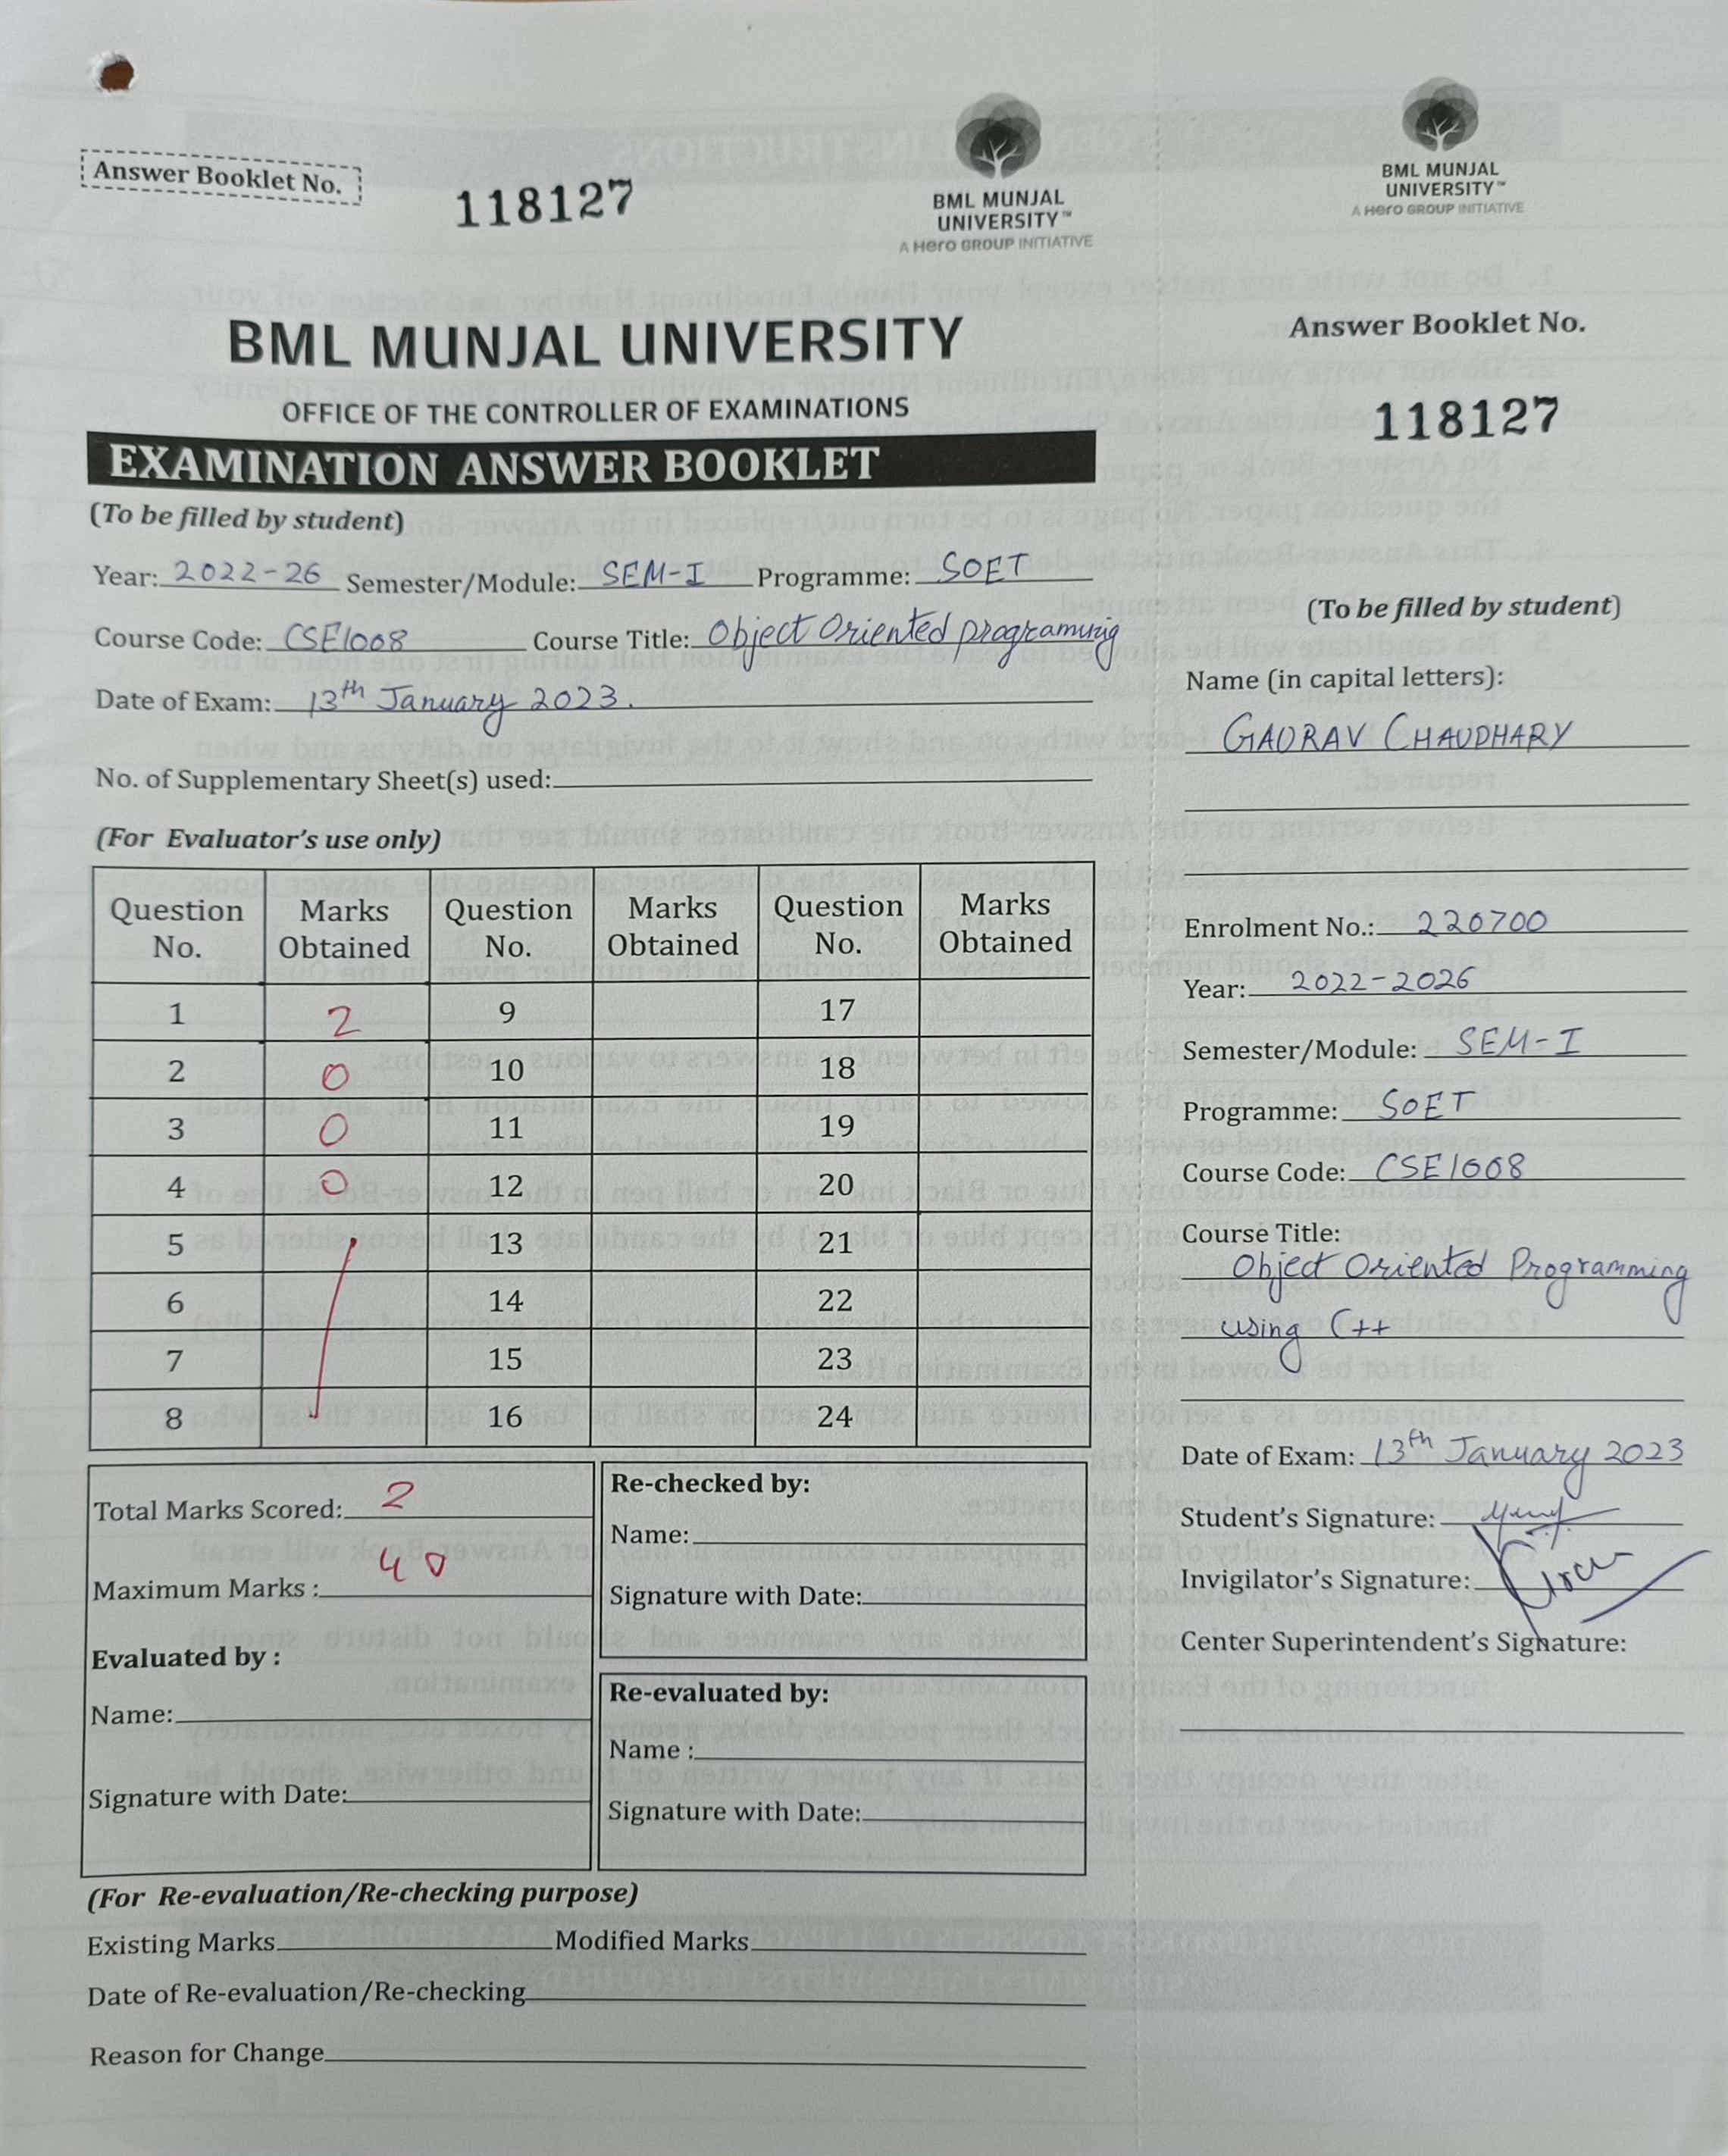 Answer Booklet No.
118127
BML MUNJAL
UNIVERSITY™
A Hero GROUP INITIATIVE
BML MUNJAL UNIVERSITY
OFFICE OF THE CONTROLLER OF EXAMINATIONS
EXAMINATION ANSWER BOOKLET
(To be filled by student)
Year: 2022-26 Semester/Module: SEM-I Programme: SOET
Course Code: CSE1008 Course Title: Object Oriented programing
Date of Exam: 13th January 2023.
No. of Supplementary Sheet(s) used:
(For Evaluator's use only)
Question No. Marks Obtained Question No. Marks Obtained Question No. Marks Obtained
1 2 9 17
2 0 10 18
3 0 11 19
4 0 12 20
5 13 21
6 14 22
7 15 23
8 16 24
Total Marks Scored: 2
Maximum Marks : 40
Evaluated by :
Name:
Signature with Date:
Re-checked by:
Name:
Signature with Date:
Re-evaluated by:
Name :
Signature with Date:
(For Re-evaluation/Re-checking purpose)
Existing Marks Modified Marks
Date of Re-evaluation/Re-checking
Reason for Change
BML MUNJAL
UNIVERSITY™
A Hero GROUP INITIATIVE
Answer Booklet No.
118127
(To be filled by student)
Name (in capital letters):
GAURAV CHAUDHARY
Enrolment No.: 220700
Year: 2022-2026
Semester/Module: SEM-I
Programme: SOET
Course Code: CSE1008
Course Title:
Object Oriented Programming
using C++
Date of Exam: 13th January 2023
Student's Signature:
Invigilator's Signature:
Center Superintendent's Signature: